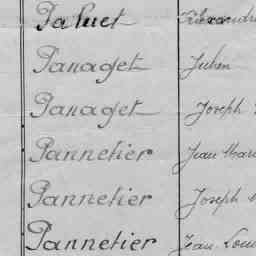 Paluet Alexandre
Panaget Julien
Panaget Joseph
Pannetier Jean Marie
Pannetier Joseph M
Pannetier Jean-Louis